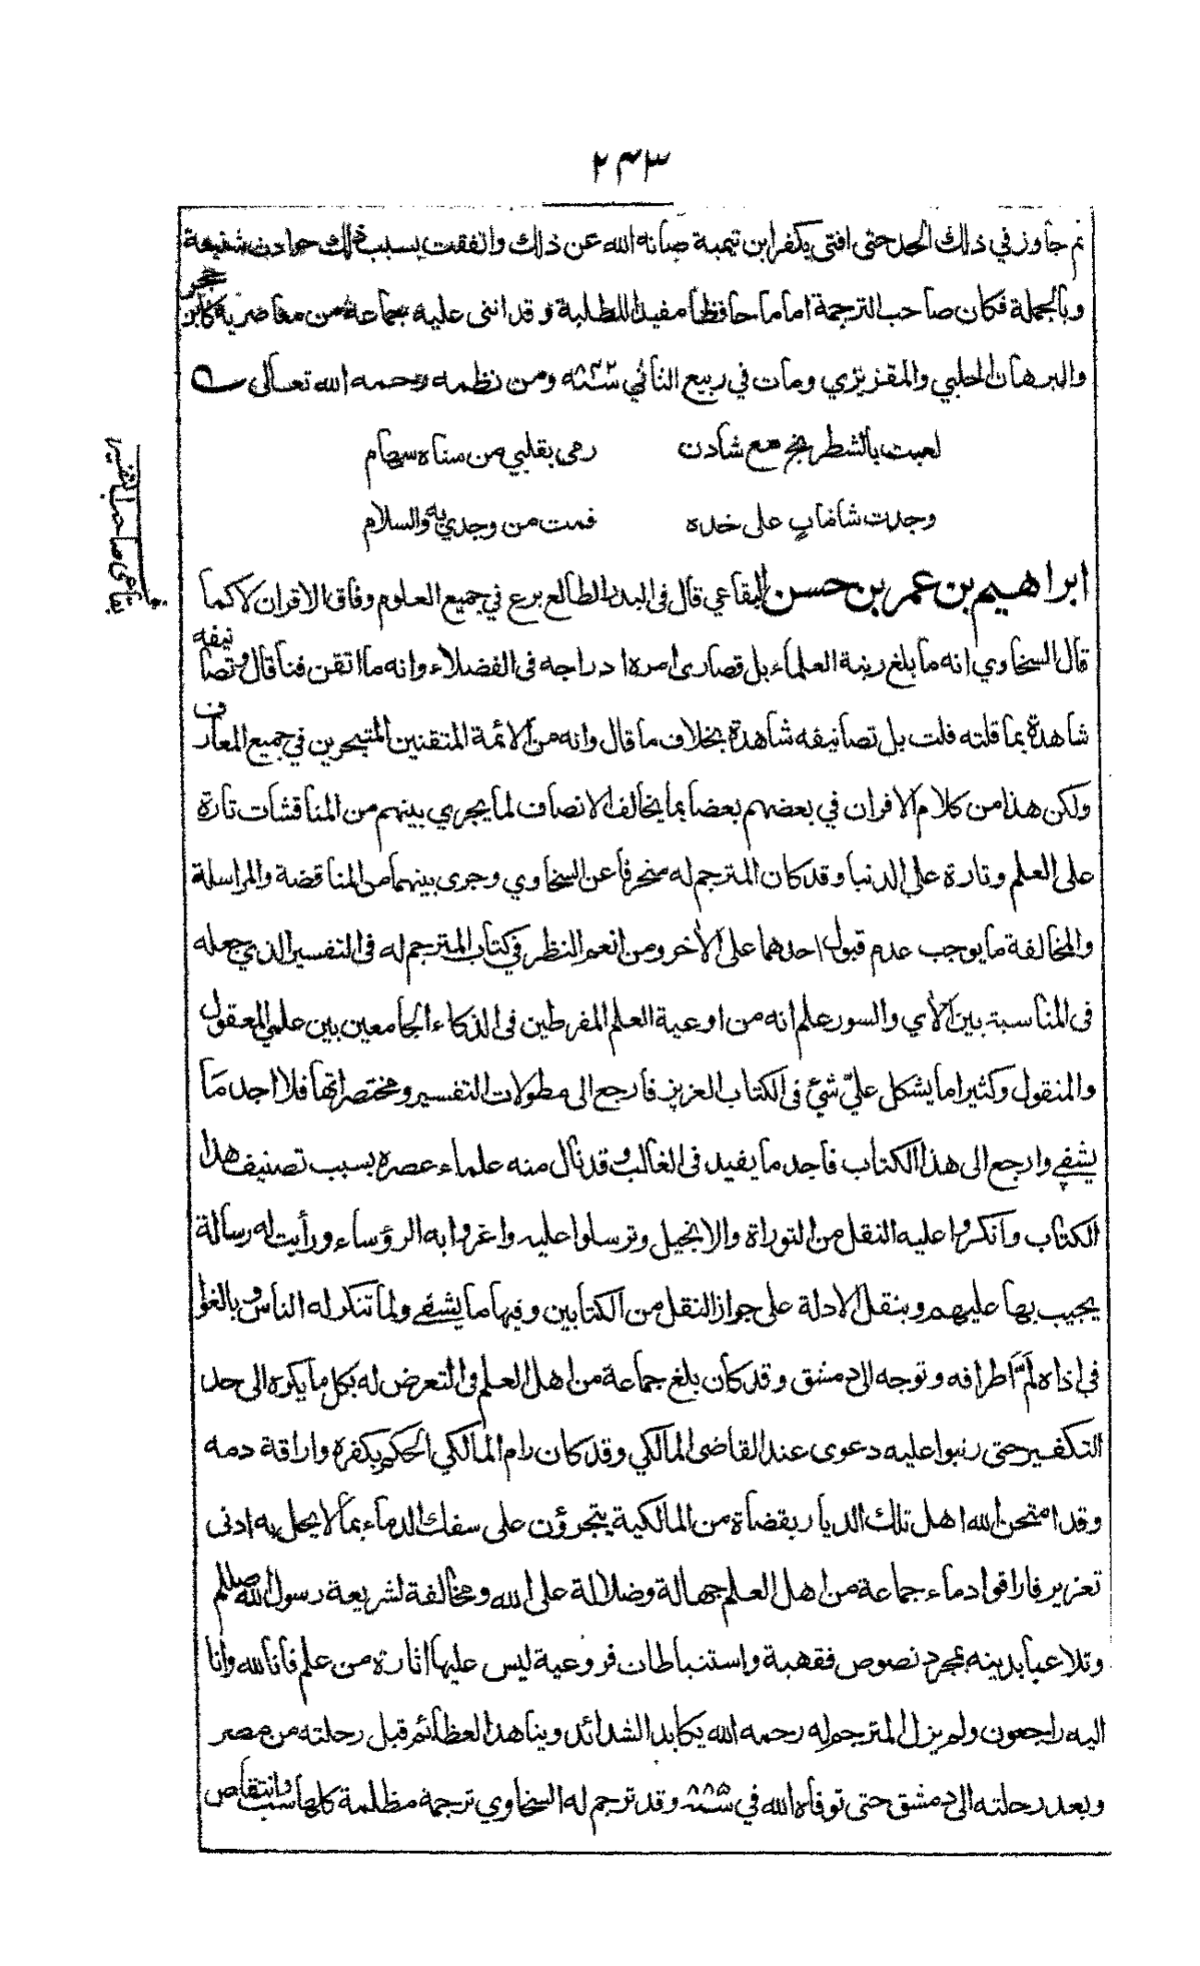 ٢٤٣
ثم جاوز في ذلك الحد حتى افتى بكفر ابن تيمية صانه الله عن ذلك واتفقت بسبب ذلك حوادث شنيعة
وبالجملة فكان صاحب الترجمة اماما حافظا مفيدا للطلبة وقد اثنى عليه جماعة من معاصريه كابن حجر
والبرهان الحلبي والمقريزي ومات في ربيع الثاني سنة ومن نظمه رحمه الله تعالى
لعبت بالشطرنج مع شادن رمى بقلبي من سناه سهام
وجدت شامات على خده فمت من وجدي به والسلام
بقاعي صاحب التفسير
ابراهيم بن عمر بن حسن البقاعي قال فى البدر الطالع برع في جميع العلوم وفاق الاقران لا كما
قال السخاوي انه ما بلغ رتبة العلماء بل قصارى امره ادراجه فى الفضلاء وانه ما اتقن فنا قال وتصانيفه
شاهدة بما قلته قلت بل تصانيفه شاهدة بخلاف ما قال وانه من الائمة المتقنين المتبحرين في جميع المعارف
ولكن هذا من كلام الاقران في بعضهم بعضا بما يخالف الانصاف لما يجري بينهم من المناقشات تارة
على العلم وتارة على الدنيا وقد كان المترجم له منحرفا عن السخاوي وجرى بينهما من المناقضة والمراسلة
والمخالفة ما يوجب عدم قبول احدهما على الأخر ومن انعم النظر في كتاب المترجم له فى التفسير الذي جعله
فى المناسبة بين الأي والسور علم انه من اوعية العلم المفرطين فى الذكاء الجامعين بين علمي المعقول
والمنقول وكثيرا ما يشكل عليّ شئ فى الكتاب العزيز فارجع الى مطولات التفسير ومختصراتها فلا اجد ما
يشفي وارجع الى هذا الكتاب فاجد ما يفيد فى الغالب وقد نال منه علماء عصره بسبب تصنيف هذا
الكتاب وانكروا عليه النقل من التوراة والانجيل وترسلوا عليه واغروا به الرؤساء ورأيت له رسالة
يجيب بها عليهم وينقل الادلة على جواز النقل من الكتابين وفيها ما يشفي ولما تنكر له الناس وبالغوا
في اذاه لمّ اطرافه وتوجه الى دمشق وقد كان بلغ جماعة من اهل العلم فى التعرض له بكل ما يكره الى حد
التكفير حتى رتبوا عليه دعوى عند القاضى المالكي وقد كان رام المالكي الحكم بكفره واراقة دمه
وقد امتحن الله اهل تلك الديار بقضاة من المالكية يتجرؤن على سفك الدماء بما لا يحل به ادنى
تعزير فاراقوا دماء جماعة من اهل العلم جهالة وضلالة على الله ومخالفة لشريعة رسول الله صللم
وتلاعبا بدينه بمجرد نصوص فقهية واستنباطات فروعية ليس عليها اثارة من علم فانا لله وانا
اليه راجعون ولم يزل المترجم له رحمه الله يكابد الشدائد ويناهد العظائم قبل رحلته من مصر
وبعد رحلته الى دمشق حتى توفاه الله في سنة ٨٨٥ وقد ترجم له السخاوي ترجمة مظلمة كلها سب وانتقاص